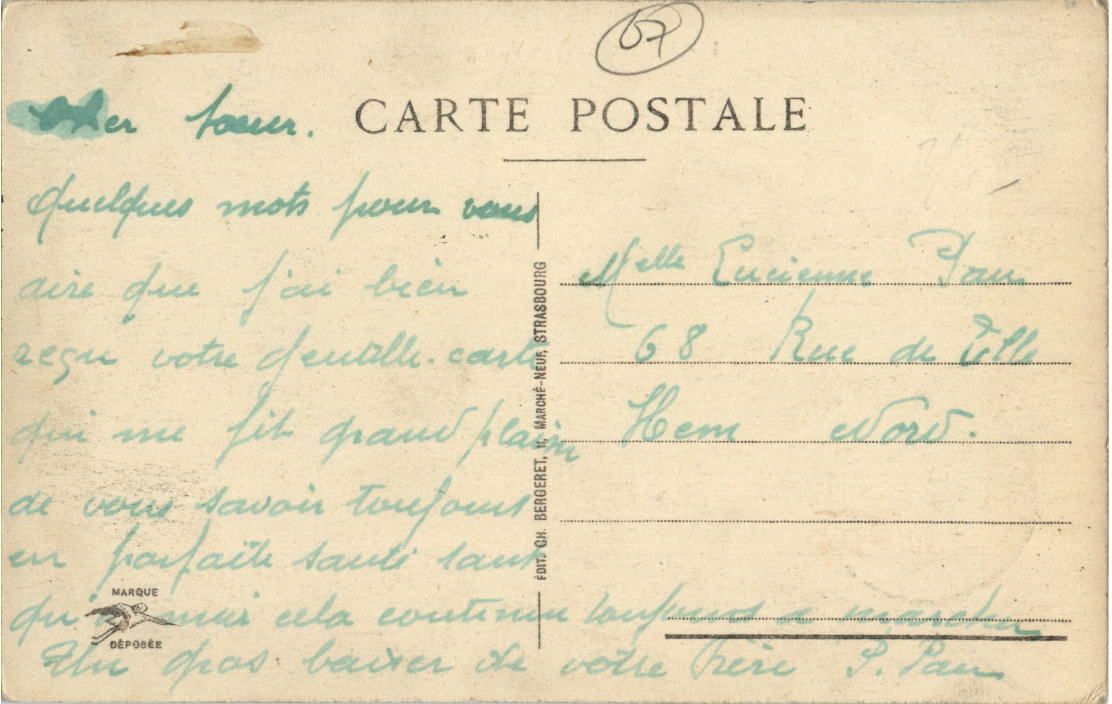 67
CARTE POSTALE
Cher soeur.
Quelques mots pour vous
dire que j'ai bien
reçu votre gentille carte
qui me fit grand plaisir
de vous savoir toujours
en parfaite santé tant
qu'à moi cela continue toujours a marcher
Un gros baiser de votre frère P. Pau
MARQUE
DÉPOSÉE
ÉDIT. CH. BERGERET, 11, MARCHÉ-NEUF, STRASBOURG
Melle Lucienne Pau
68 Rue de
Hem Nord.